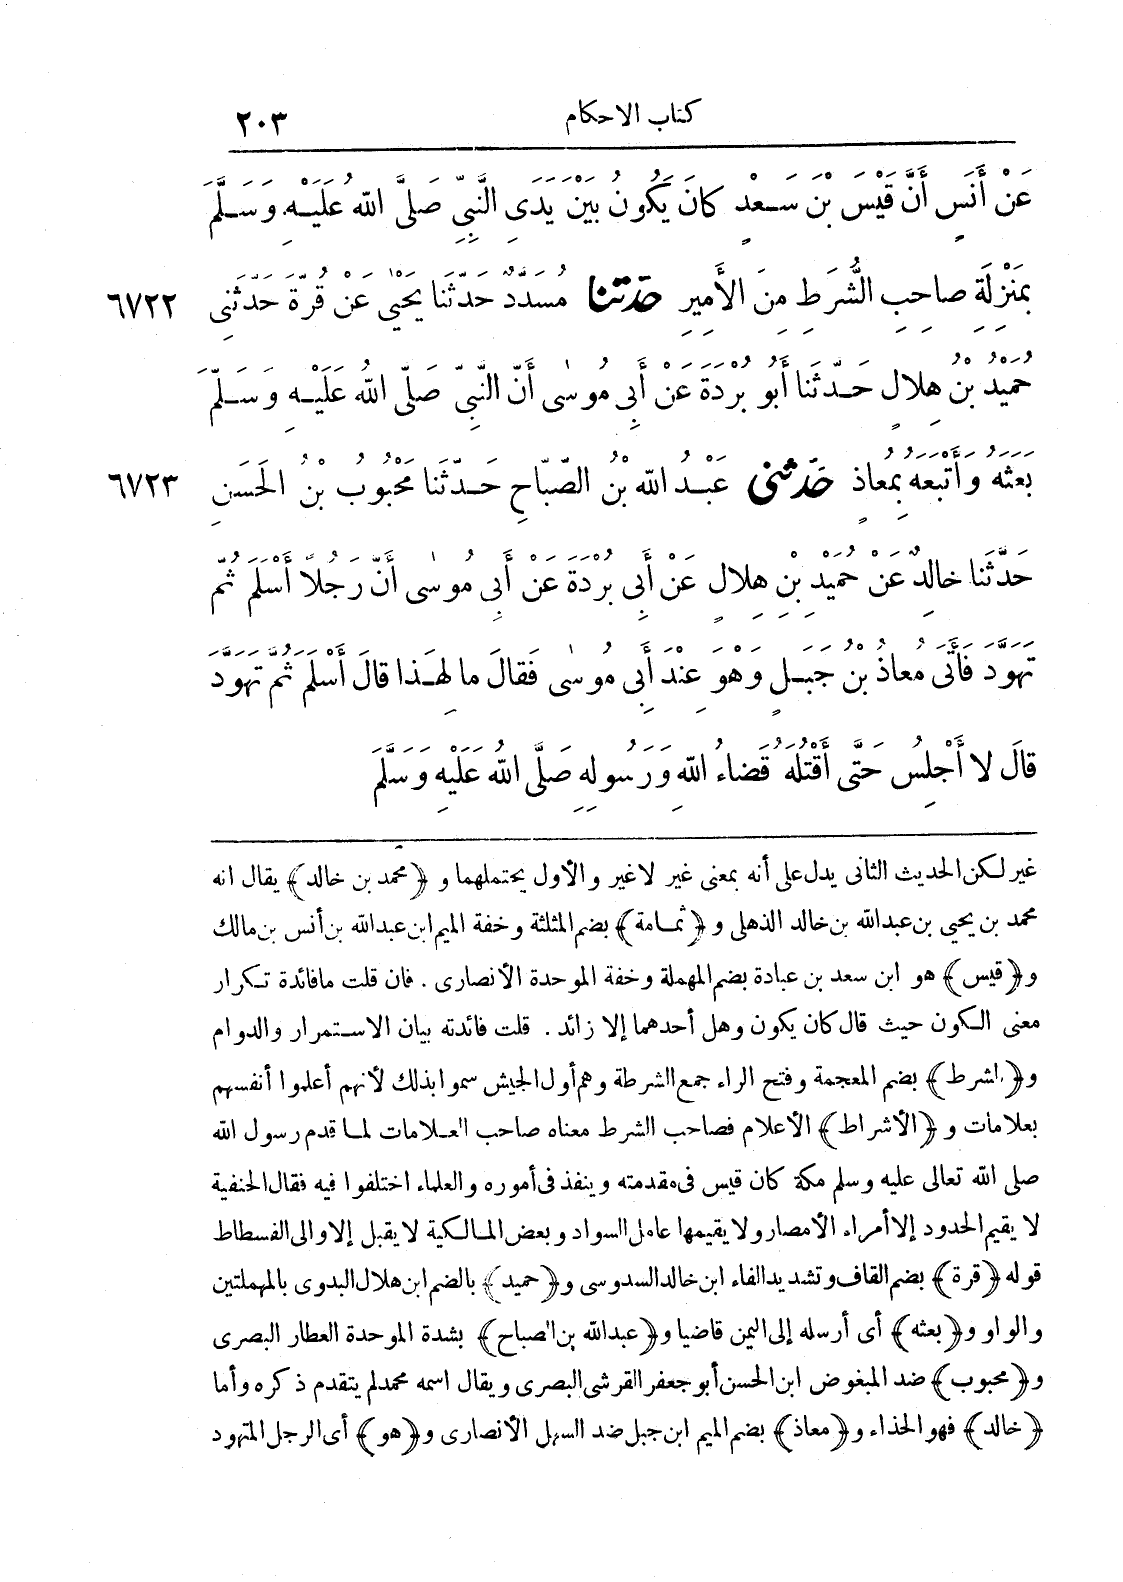 كتاب الاحكام ٢٠٣
عَنْ أَنَسٍ أَنَّ قَيْسَ بْنَ سَعْدٍ كَانَ يَكُونُ بَيْنَ يَدَىِ النَّبِيِّ صَلَّى اللهُ عَلَيْهِ وَسَلَّمَ
بِمَنْزِلَةِ صَاحِبِ الشُّرَطِ مِنَ الأَمِيرِ حَدَّثَنَا مُسَدَّدٌ حَدَّثَنَا يَحْيَى عَنْ قُرَّةَ حَدَّثَنِى ٦٧٢٢
حُمَيْدُ بْنُ هِلالٍ حَدَّثَنَا أَبُو بُرْدَةَ عَنْ أَبِى مُوسَى أَنَّ النَّبِيَّ صَلَّى اللهُ عَلَيْهِ وَسَلَّمَ
بَعَثَهُ وَأَتْبَعَهُ بِمُعَاذٍ حَدَّثَنِى عَبْدُ اللهِ بْنُ الصَّبَّاحِ حَدَّثَنَا مَحْبُوبُ بْنُ الحَسَنِ ٦٧٢٣
حَدَّثَنَا خَالِدٌ عَنْ حُمَيْدِ بْنِ هِلالٍ عَنْ أَبِى بُرْدَةَ عَنْ أَبِى مُوسَى أَنَّ رَجُلاً أَسْلَمَ ثُمَّ
تَهَوَّدَ فَأَتَى مُعَاذُ بْنُ جَبَلٍ وَهْوَ عِنْدَ أَبِى مُوسَى فَقَالَ مَا لِهَذَا قَالَ أَسْلَمَ ثُمَّ تَهَوَّدَ
قَالَ لا أَجْلِسُ حَتَّى أَقْتُلَهُ قَضَاءُ اللهِ وَرَسُولِهِ صَلَّى اللهُ عَلَيْهِ وَسَلَّمَ
غير لكن الحديث الثانى يدل على أنه بمعنى غير لاغير والأول يحتملهما و ﴿محمد بن خالد﴾ يقال انه
محمد بن يحيى بن عبدالله بن خالد الذهلى و ﴿ثمامة﴾ بضم المثلثة وخفة الميم ابن عبدالله بن أنس بن مالك
و﴿قيس﴾ هو ابن سعد بن عبادة بضم المهملة وخفة الموحدة الأنصارى . فان قلت مافائدة تكرار
معنى الكون حيث قال كان يكون وهل أحدهما إلا زائد . قلت فائدته بيان الاستمرار والدوام
و﴿الشرط﴾ بضم المعجمة وفتح الراء جمع الشرطة وهم أول الجيش سموا بذلك لأنهم أعلموا أنفسهم
بعلامات و ﴿الأشراط﴾ الأعلام فصاحب الشرط معناه صاحب العلامات لما قدم رسول الله
صلى الله تعالى عليه وسلم مكة كان قيس فى مقدمته وينفذ فى أموره والعلماء اختلفوا فيه فقال الحنفية
لا يقيم الحدود إلا أمراء الأمصار ولا يقيمها عامل السواد وبعض المالكية لا يقبل إلا والى الفسطاط
قوله ﴿قرة﴾ بضم القاف وتشديد الفاء ابن خالد السدوسى و﴿حميد﴾ بالضم ابن هلال البدوى بالمهملتين
والواو و﴿بعثه﴾ أى أرسله إلى اليمن قاضيا و﴿عبدالله بن الصباح﴾ بشدة الموحدة العطار البصرى
و﴿محبوب﴾ ضد المبغوض ابن الحسن أبو جعفر القرشى البصرى ويقال اسمه محمد لم يتقدم ذكره وأما
﴿خالد﴾ فهو الحذاء و﴿معاذ﴾ بضم الميم ابن جبل ضد السهل الأنصارى و﴿هو﴾ أى الرجل المتهود